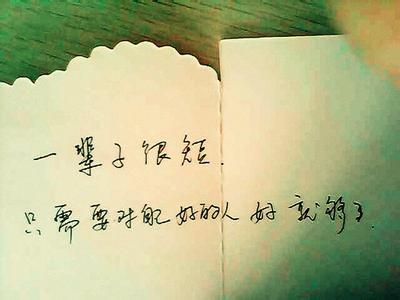 一辈子很短.
只需要对自己好的人好就够了.